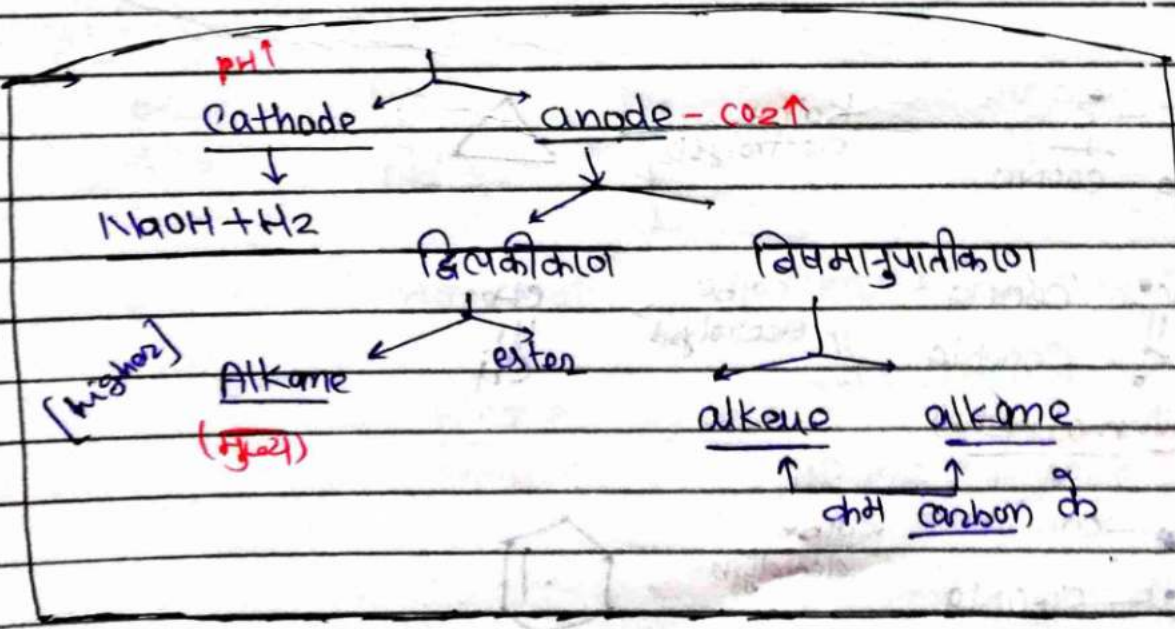 pH↑
Cathode anode - CO2↑
NaOH + H2
द्विलकीकरण विषमानुपातीकरण
[higher] Alkane ester
(मुख्य)
alkene alkane
कम carbon के